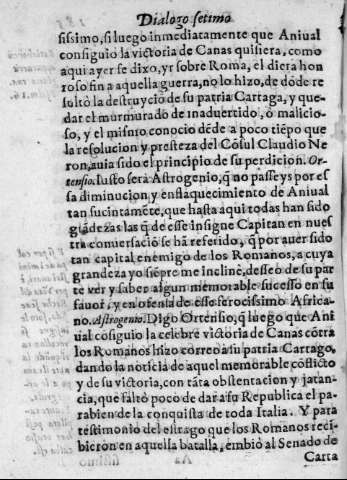 Dialogo setimo
sissimo, si luego inmediatamente que Aniual
consiguio la victoria de Canas quisiera, como
aqui ayer se dixo, yr sobre Roma, el diera hon
roso fin a aquella guerra, no lo hizo, de dõde re
sultò la destruyciõ de su patria Cartago, y que-
dar el murmurado de inaduertido, o malicio-
so, y el mismo conocio dẽde a poco tiẽpo que
la resolucion y presteza del Cõsul Claudio Ne
ron, auia sido el principio de su perdicion. Or-
tensio. Iusto será Astrogenio, q̃ no passeys por es
sa diminucion y enflaquecimiento de Aniual
tan sucintamẽte, que hasta aqui todas han sido
grãdezas las q̃ de esse insigne Capitan en nues
tra conuersaciõ se hã referido, q̃ por auer sido
tan capital enemigo de los Romanos, a cuya
grandeza yo siẽpre me inclinè, desseo de su par
te ver y saber algun memorable sucesso en su
fauor, y en ofensa de esse ferocissimo Africa-
no. Astrogenio. Digo Ortensio, q̃ luego que Ani
ual cõsiguio la celebre victoria de Canas cõtra
los Romanos hizo correo a su patria Cartago,
dando la noticia de aquel memorable cõflicto
y de su victoria, con tãta obstentacion y jatan-
cia, que faltò poco de dar a su Republica el pa-
rabien de la conquista de toda Italia. Y para
testimonio del estrago que los Romanos reci-
bieron en aquella batalla, embiò al Senado de
Carta